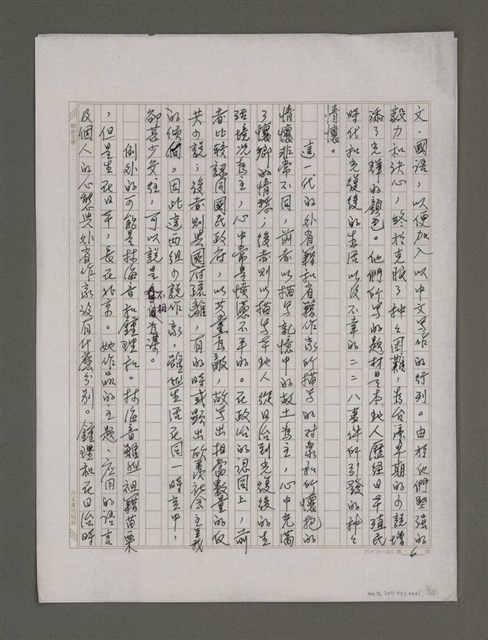 文、國語,以便加入以中文寫作的行列。由於他們堅強的
毅力和決心,終於克服了種々困難,為台灣早期的小說增
添了光輝的顏色。他們所寫的題材是本地人歷經日本殖民
時代和光復後的生活以及不幸的二二八事件所引發的種々
情懷。
這一代的外省籍和省籍作家所描寫的對象和所懷抱的
情懷非常不同,前者以描寫記憶中的故土為主,心中充滿
了懷鄉的情愁;後者則以描寫本地人從日治到光復後的生
活境況為主,心中常是憤懣不平的。在政治的認同上,前
者比較認同國民政府,以共黨為敵,故寫出相當數量的反
共小說;後者則與國府疏離,有的時或顯出欣羨社會主義
的傾向。因此這兩組小說作家,雖然生活在同一時空中,
卻甚少交往,可以說是不相為謀。
例外的可能是林海音和鍾理和。林海音雖然祖籍苗栗
,但是生在日本,長在北京。她作品的主題、應用的語言
及個人的心態與外省作家沒有什麼分別。鍾理和在日治時
6